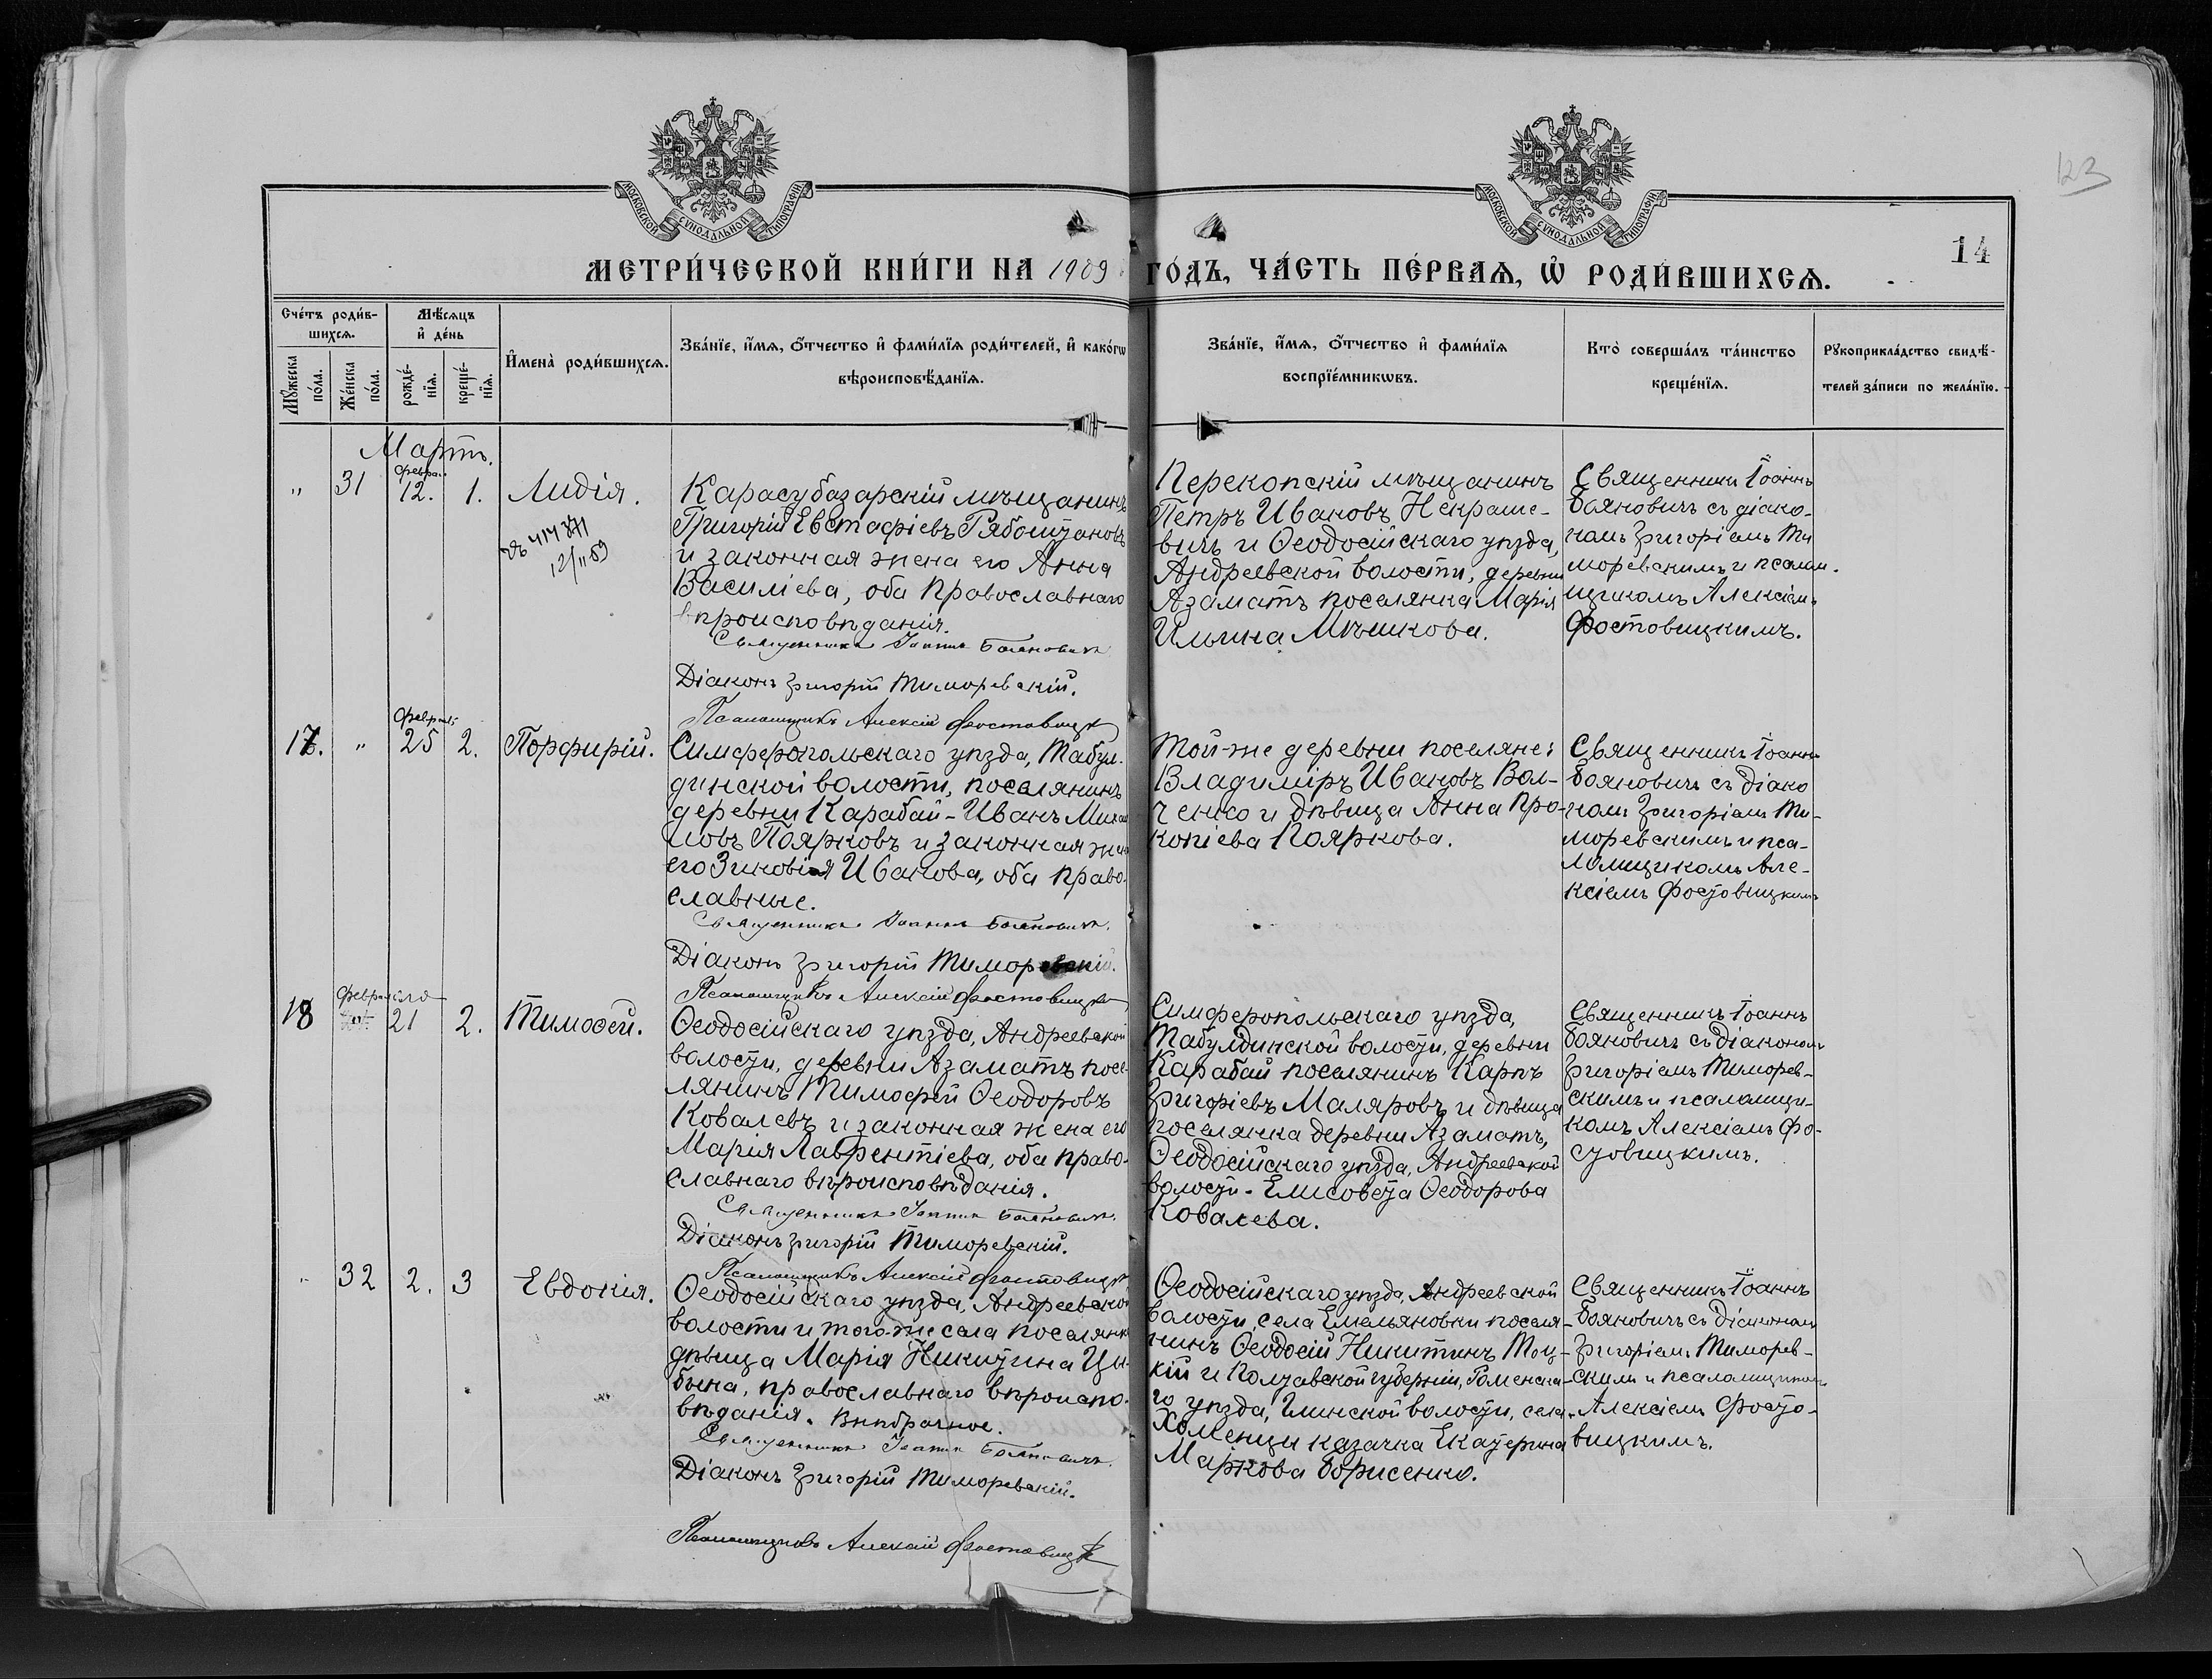 МОСКОВСКОЙ СѴНОДАЛЬНОЙ ТИПОГРАФІИ
МОСКОВСКОЙ СѴНОДАЛЬНОЙ ТИПОГРАФІИ
123
14
МЕТРИ́ЧЕСКОЙ КНИ́ГИ НА 1909 ГО́ДЪ, ЧА́СТЬ ПЕ́РВАѦ, Ѡ҆ РОДИ́ВШИХСѦ.
Сче́тъ роди́в-
шихсѧ.
Мꙋ́жеска по́ла.
Же́нска по́ла.
Мѣ́сѧцъ
и҆ де́нь
рожде́-нїѧ.
креще́-нїѧ.
И҆мена̀ роди́вшихсѧ.
Зва́нїе, и҆́мѧ, ѻ҆́тчество и҆ фами́лїѧ роди́телей, и҆ како́гѡ
вѣроисповѣ́данїѧ.
Зва́нїе, и҆́мѧ, ѻ҆́тчество и҆ фами́лїѧ
воспрїе́мникѡвъ.
Кто̀ соверша́лъ та́инство
креще́нїѧ.
Рꙋкоприкла́дство свидѣ́-
телей за́писи по жела́нїю.
Мартъ.
" 31 Февра. 12. 1. Лидія.
12/II 59
Карасубазарскій мѣщанинъ
Григорій Евстафіевъ Рябоштановъ
и законная жена его Анна
Василіева, оба православнаго
вѣроисповѣданія.
Священникъ Іоаннъ Бояновичъ
Діаконъ Григорій Тиморевскій.
Псаломщикъ Алексій Фостовицкій
Перекопскій мѣщанинъ
Петръ Ивановъ Некраше-
вичъ и Ѳеодосійскаго уѣзда,
Андреевской волости, деревни
Азаматъ поселянка Марія
Ильина Мѣшкова.
Священникъ Іоаннъ
Бояновичъ съ діако-
номъ Григоріемъ Ти
моревскимъ и псалом.
щикомъ Алексіемъ
Фостовицкимъ.
17. " Феврал. 25 2. Порфирій.
Симферопольскаго уѣзда, Табул-
динской волости, поселянинъ
деревни Карабай - Иванъ Михай
ловъ Поярковъ и законная жена
его Зиновія Иванова, оба право-
славные.
Священникъ Іоаннъ Бояновичъ.
Діаконъ Григорій Тиморевскій.
Псаломщикъ Алексій Фостовицкій
Той-же деревни поселяне:
Владиміръ Ивановъ Вол-
ченко и дѣвица Анна Про-
копіева Пояркова.
Священникъ Іоаннъ
Бояновичъ съ діако
номъ Григоріемъ Ти-
моревскимъ и пса-
ломщикомъ Але-
ксіемъ Фостовицкимъ
18 Февраля 21 2. Тимоѳей.
Ѳеодосійскаго уѣзда, Андреевской
волости, деревни Азаматъ посе-
лянинъ Тимофей Ѳеодоровъ
Ковалевъ и законная жена его
Марія Лаврентіева, оба право-
славнаго вѣроисповѣданія.
Священникъ Іоаннъ Бояновичъ.
Діаконъ Григорій Тиморевскій.
Псаломщикъ Алексій Фостовицкій
Симферопольскаго уѣзда,
Табулдинской волости, деревни
Карабай поселянинъ Карпъ
Григоріевъ Маляровъ и дѣвица
поселянка деревни Азаматъ,
Ѳеодосійскаго уѣзда, Андреевской
волости - Елисовета Ѳеодорова
Ковалева.
Священникъ Іоаннъ
Бояновичъ съ Діакономъ
Григоріемъ Тиморев-
скимъ и псаломщи-
комъ Алексіемъ Фо-
стовицкимъ.
" 32 2. 3 Евдокія.
Ѳеодосійскаго уѣзда, Андреевской
волости и того-же села поселянка
дѣвица Марія Никитина Цы-
бина, православнаго вѣроиспо-
вѣданія. Внѣбрачное.
Священникъ Іоаннъ Бояновичъ.
Діаконъ Григорій Тиморевскій.
Псаломщикъ Алексій Фостовицкій
Ѳеодосійскаго уѣзда, Андреевской
волости, села Емельяновки поселя-
нинъ Ѳеодосій Никитинъ Тоц-
кій и Полтавской губерніи, Роменска-
го уѣзда, Глинской волости, села
Хоменцы казачка Екатерина
Маркова Борисенко.
Священникъ Іоаннъ
Бояновичъ съ Діакономъ
Григоріемъ Тиморев-
скимъ и псаломщикомъ
Алексіемъ Фосто-
вицкимъ.